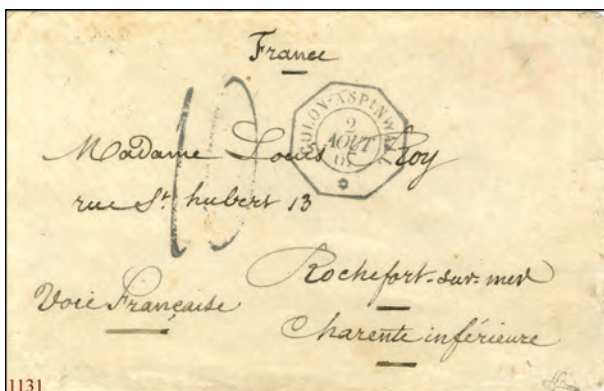 France
10
COLON-ASPINWALL
2
AOUT
Madame Louis Roy
rue St. hubert 13
Rochefort-sur-mer
Voie Française
Charente inférieure
1131